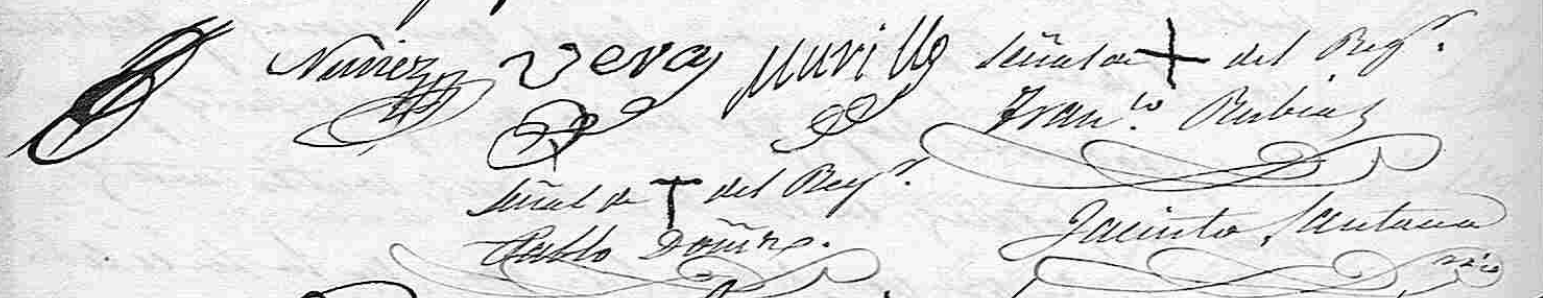 Nuñez Vera Murillo Señal de + del Regr.
Franco. Rubiaz
Señal de + del Regr.
Pablo
Jacinto Santana
srio